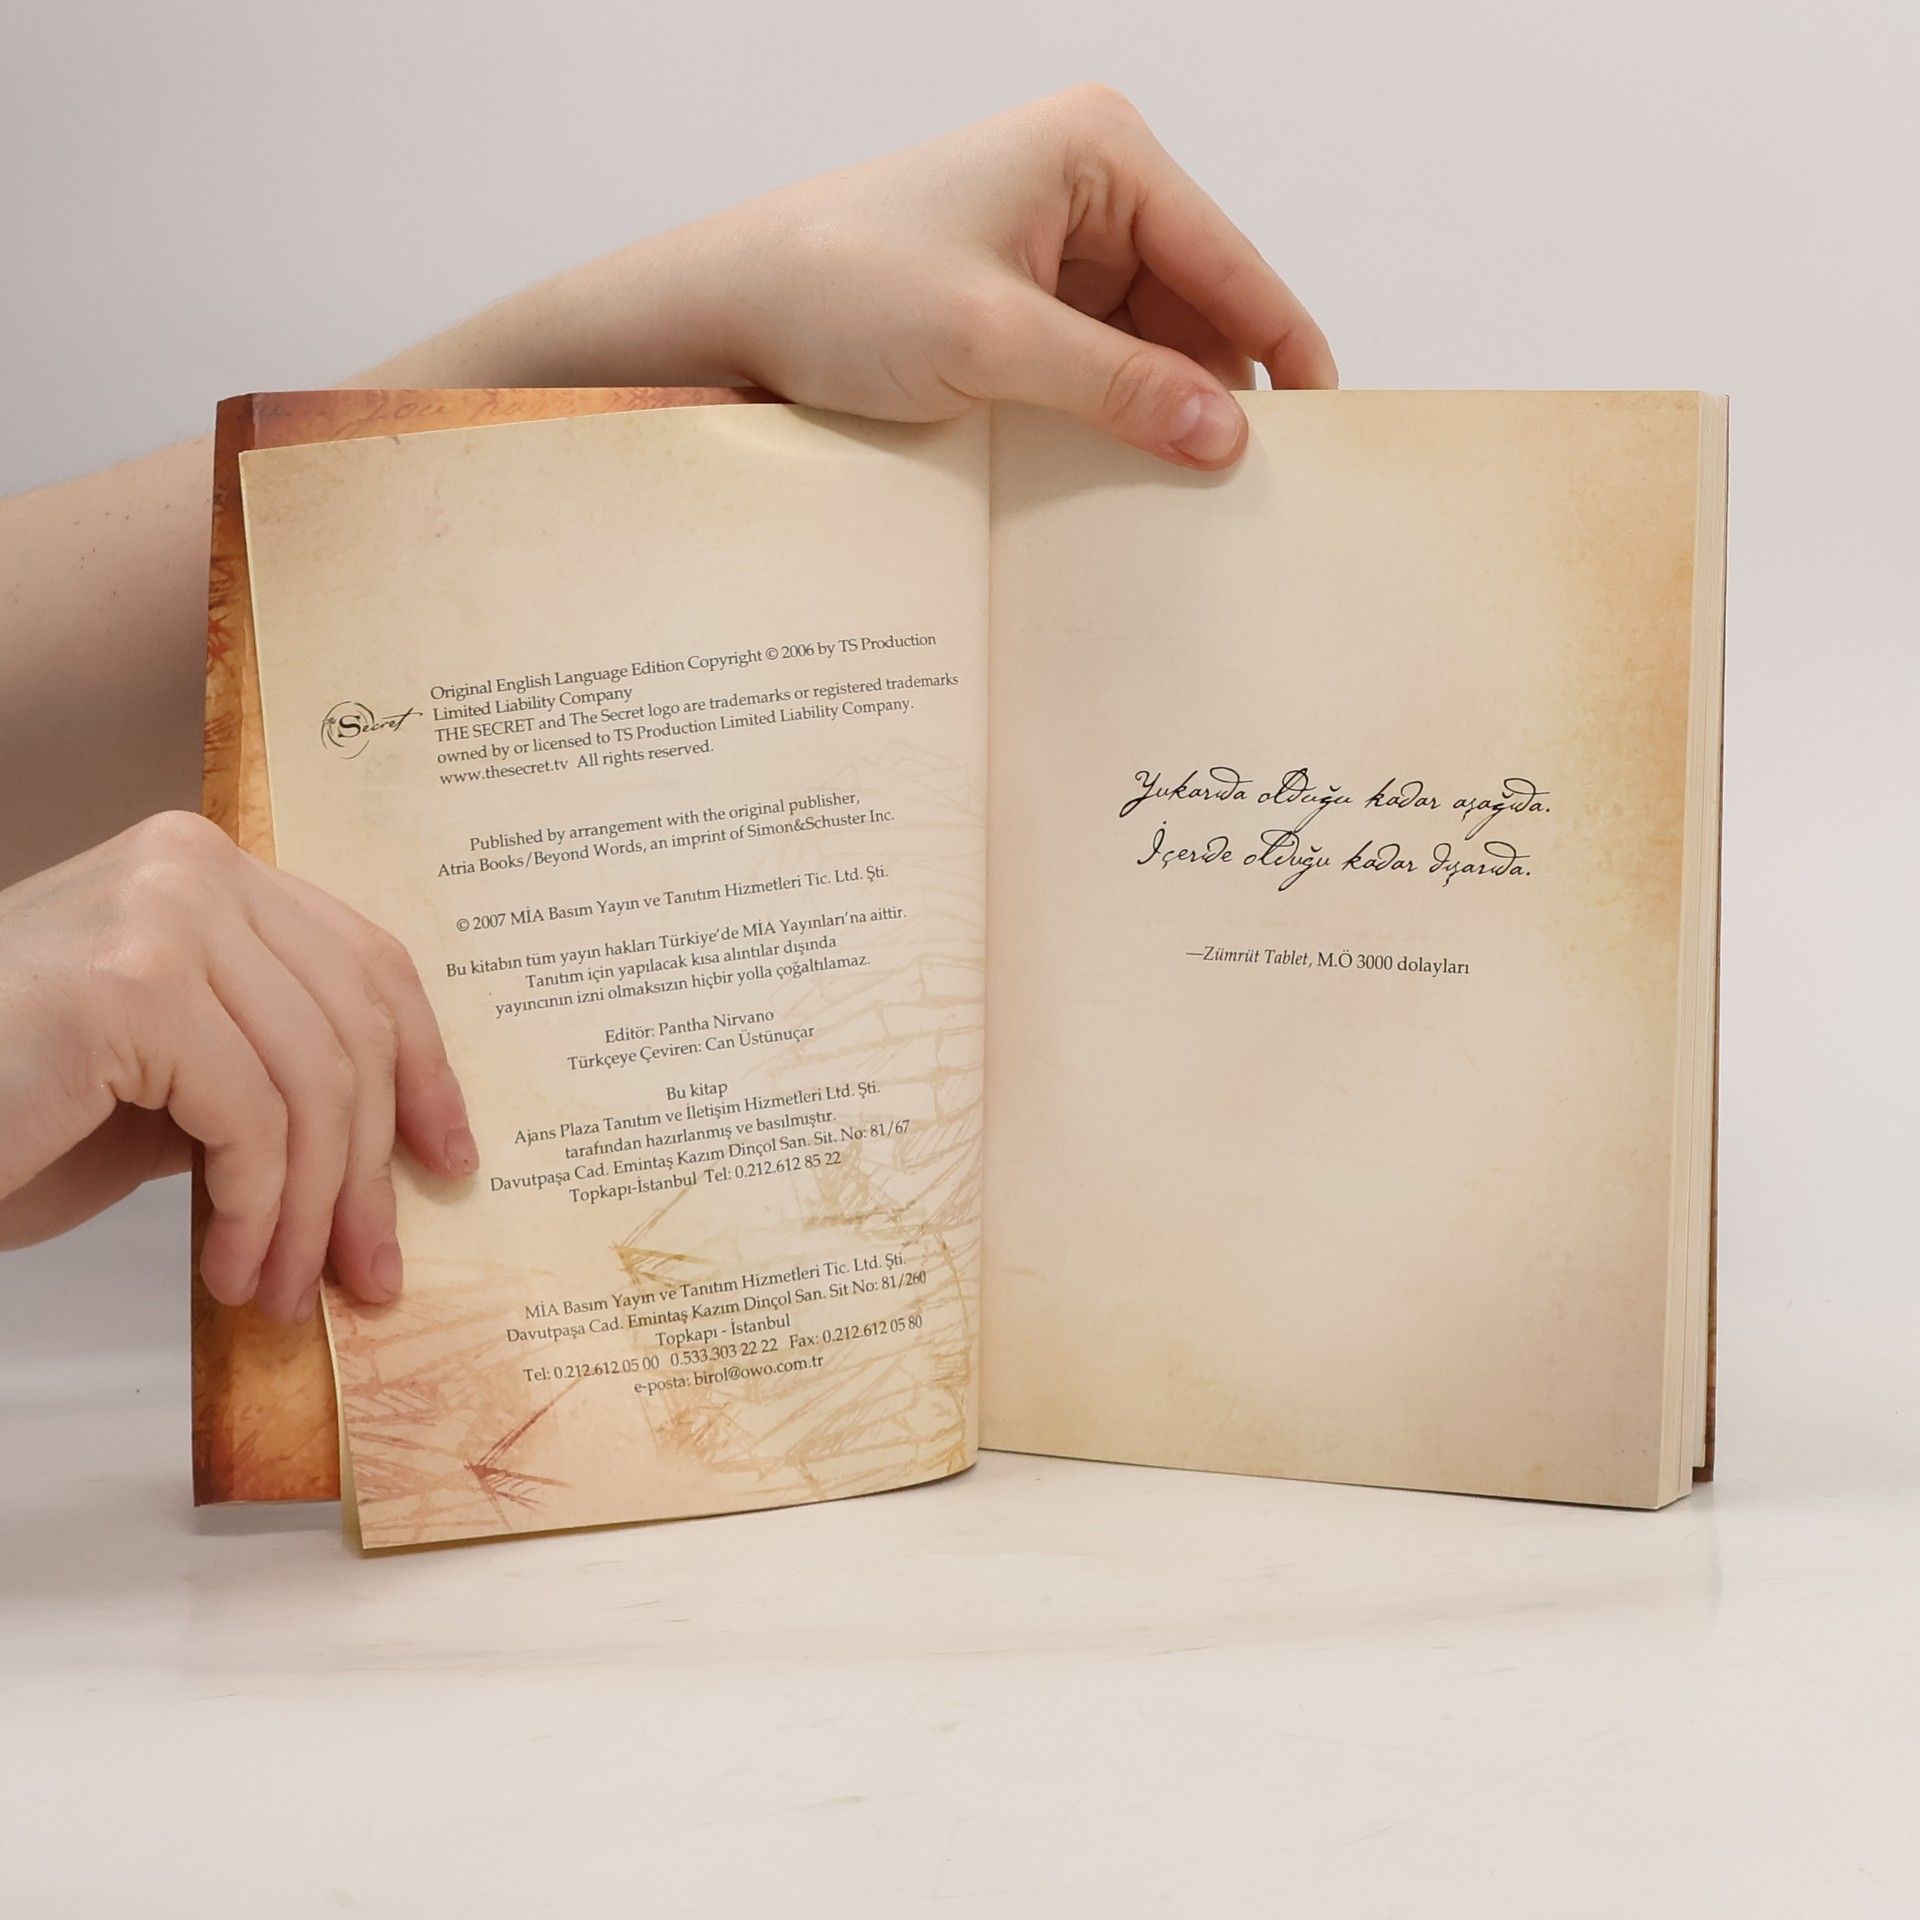 Secret
Original English Language Edition Copyright © 2006 by TS Production
Limited Liability Company
THE SECRET and The Secret logo are trademarks or registered trademarks
owned by or licensed to TS Production Limited Liability Company.
www.thesecret.tv All rights reserved.
Published by arrangement with the original publisher,
Atria Books/Beyond Words, an imprint of Simon&Schuster Inc.
© 2007 MİA Basım Yayın ve Tanıtım Hizmetleri Tic. Ltd. Şti.
Bu kitabın tüm yayın hakları Türkiye'de MİA Yayınları'na aittir.
Tanıtım için yapılacak kısa alıntılar dışında
yayıncının izni olmaksızın hiçbir yolla çoğaltılamaz.
Editör: Pantha Nirvano
Türkçeye Çeviren: Can Üstünuçar
Bu kitap
Ajans Plaza Tanıtım ve İletişim Hizmetleri Ltd. Şti.
tarafından hazırlanmış ve basılmıştır.
Davutpaşa Cad. Emintaş Kazım Dinçol San. Sit. No: 81/67
Topkapı-İstanbul Tel: 0.212.612 85 22
MİA Basım Yayın ve Tanıtım Hizmetleri Tic. Ltd. Şti.
Davutpaşa Cad. Emintaş Kazım Dinçol San. Sit No: 81/260
Topkapı - İstanbul
Tel: 0.212.612 05 00 0.533.303 22 22 Fax: 0.212.612 05 80
e-posta: birol@owo.com.tr
Yukarıda olduğu kadar aşağıda.
İçeride olduğu kadar dışarıda.
—Zümrüt Tablet, M.Ö 3000 dolayları